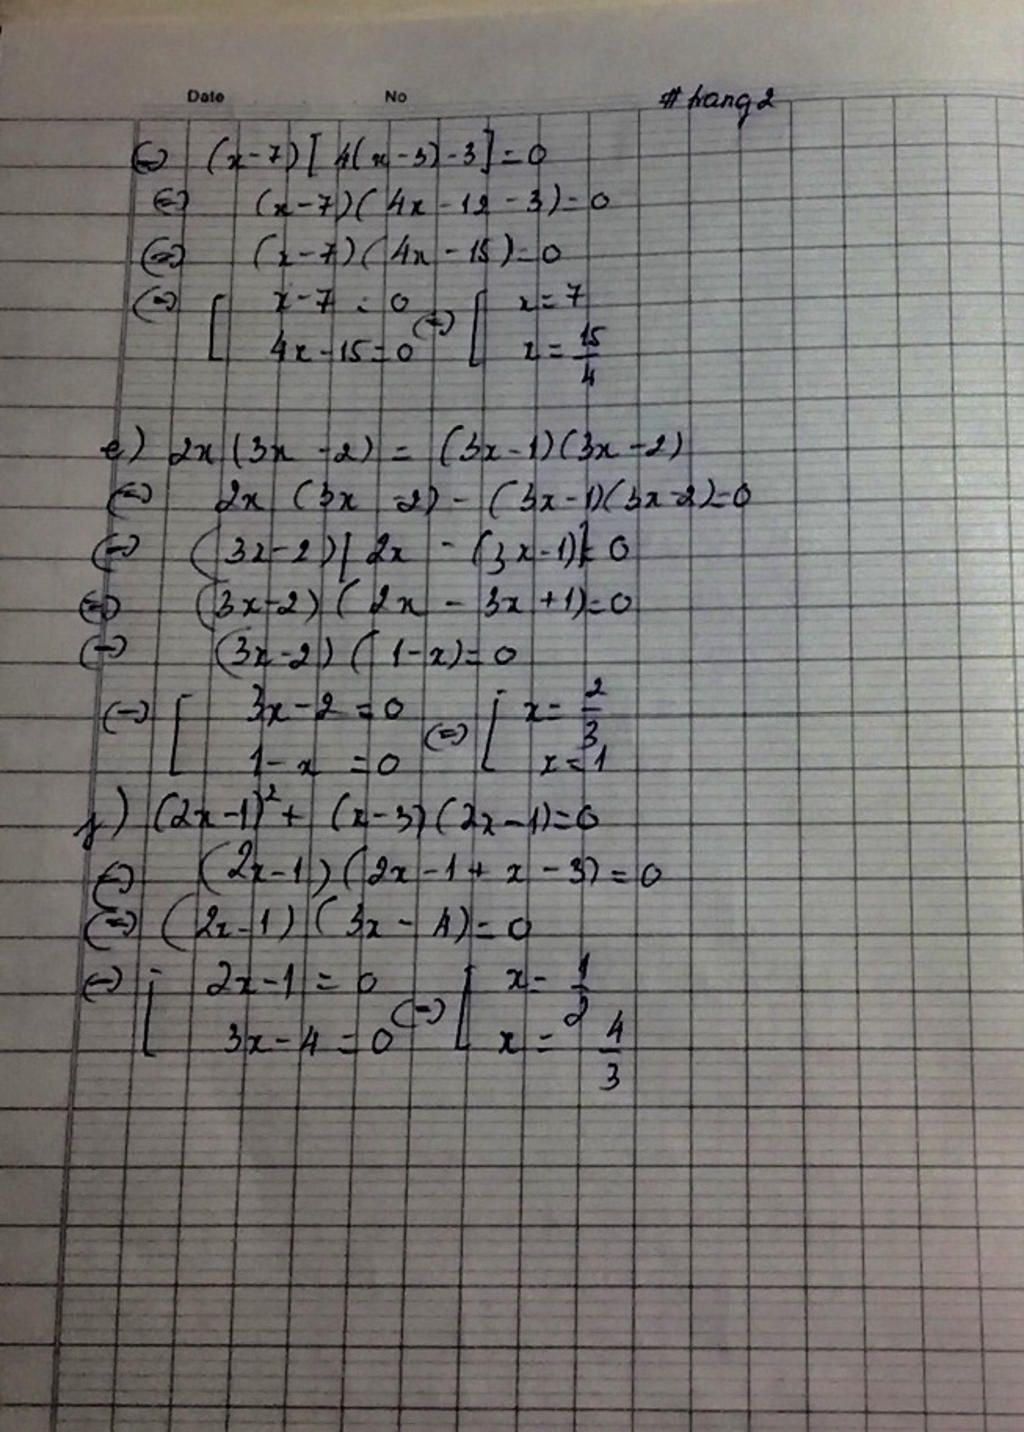 Date No #trang 2
⇔ (x-7)[4(x-3)-3]=0
⇔ (x-7)(4x-12-3)=0
⇔ (x-7)(4x-15)=0
⇔ [ x-7=0 ⇔ [ x=7
4x-15=0 x=15/4
e) 2x(3x-2) = (3x-1)(3x-2)
⇔ 2x(3x-2) - (3x-1)(3x-2)=0
⇔ (3x-2)[2x-(3x-1)]=0
⇔ (3x-2)(2x-3x+1)=0
⇔ (3x-2)(1-x)=0
⇔ [ 3x-2=0 ⇔ [ x=2/3
1-x=0 x=1
f) (2x-1)²+(x-3)(2x-1)=0
⇔ (2x-1)(2x-1+x-3)=0
⇔ (2x-1)(3x-4)=0
⇔ [ 2x-1=0 ⇔ [ x=1/2
3x-4=0 x=4/3